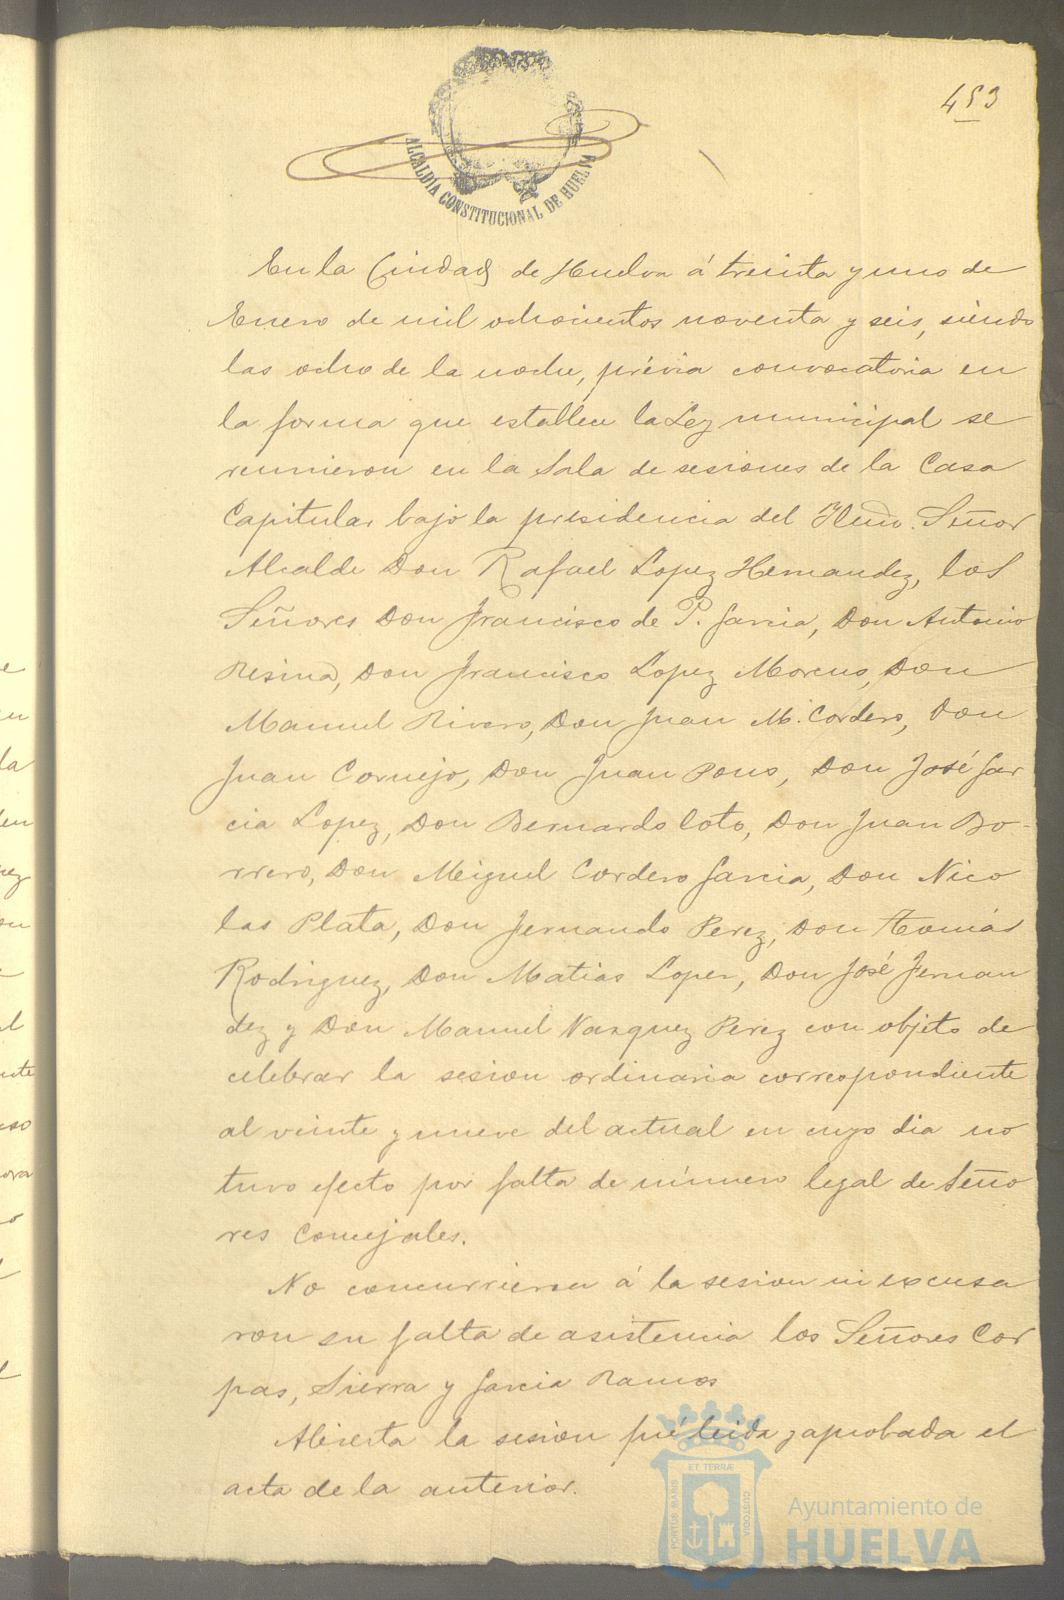 453
ALCALDIA CONSTITUCIONAL DE HUELVA
En la Ciudad de Huelva á treinta y uno de
Enero de mil ochocientos noventa y seis, siendo
las ocho de la noche, prévia convocatoria en
la forma que establece la Ley municipal se
reunieron en la Sala de sesiones de la Casa
Capitular bajo la presidencia del Iltmo. Señor
Alcalde Don Rafael Lopez Hernandez, los
Señores Don Francisco de P. Garcia, Don Antonio
Resina, Don Francisco Lopez Moreno, Don
Manuel Rivero, Don Juan M. Cordero, Don
Juan Cornejo, Don Juan Pons, Don José Gar
cia Lopez, Don Bernardo Coto, Don Juan Bo-
rrero, Don Miguel Cordero Garcia, Don Nico
las Plata, Don Fernando Perez, Don Tomás
Rodriguez, Don Matias Lopez, Don José Fernan
dez y Don Manuel Vazquez Perez con objeto de
celebrar la sesion ordinaria correspondiente
al veinte y nueve del actual en cuyo dia no
tuvo efecto por falta de número legal de Seño
res Concejales.
No concurrieron á la sesion ni excusa
ron su falta de asistencia los Señores Cor
pas, Sierra y Garcia Ramos
Abierta la sesion fué leida y aprobada el
acta de la anterior.
PORTUS MARIS ET TERRÆ CUSTODIA
Ayuntamiento de
HUELVA